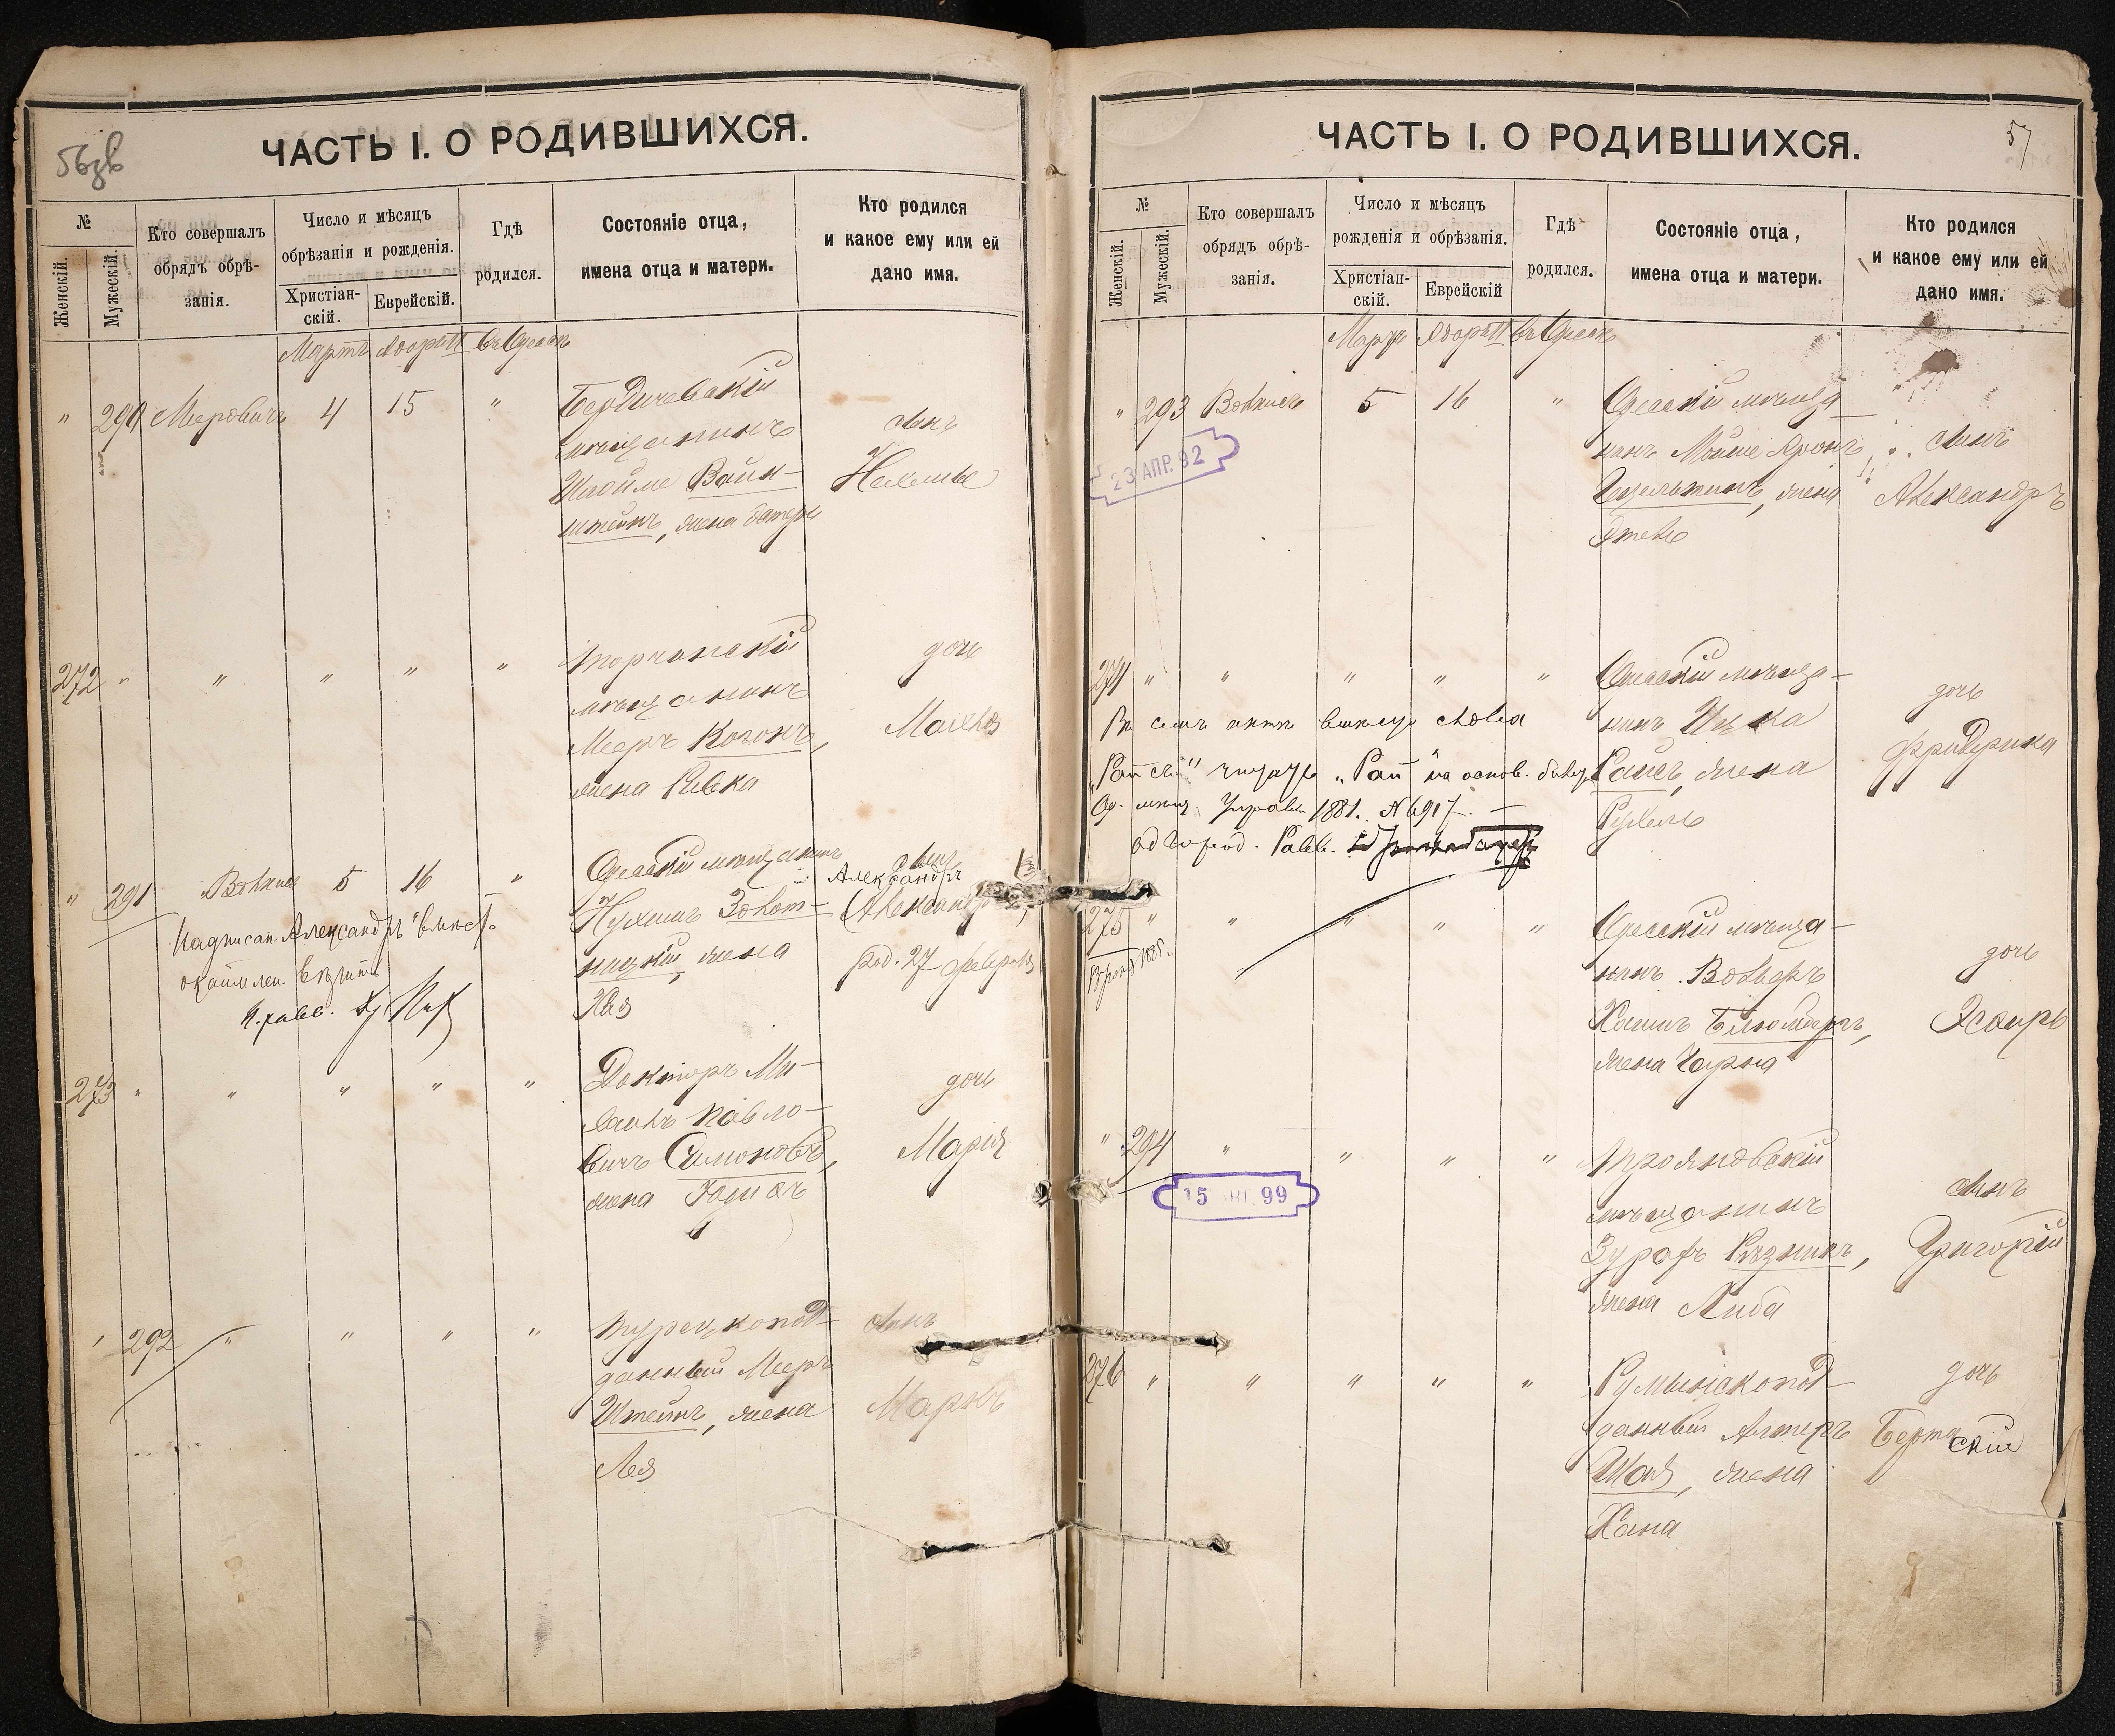 56 зв
ЧАСТЬ I. О РОДИВШИХСЯ.
№
Женскій.
Мужескій.
Кто совершалъ
обрядъ обрѣ-
занія.
Число и мѣсяцъ
обрѣзанія и рожденія.
Христіан-
скій.
Еврейскій.
Гдѣ
родился.
Состояніе отца,
имена отца и матери.
Кто родился
и какое ему или ей
дано имя.
Мартъ Адаръ II въ Одессѣ
" 290 Меровичъ 4 15 "
Бердичевскій
мѣщанинъ
Шлойме Вайн-
штейнъ, жена
сынъ
272 " " " " "
Торчинскій
мѣщанинъ
Мееръ Коганъ,
жена Ривка
дочь
Малька
" 291 5 16 "
Одесскій мѣщанинъ
Нухимъ Золот-
ницкій, жена
Хая
сынъ
Александръ
род. 27 февраля
Надписан. Александръ вмѣсто
273 " " " " "
Докторъ Ми-
хаилъ Павло-
вичъ Симоновъ,
жена
дочь
Марія
" 292 " " " "
Турецкопод-
данный Мееръ
Штейнъ, жена
Лея
сынъ
Маркъ
57
ЧАСТЬ I. О РОДИВШИХСЯ.
№
Женскій.
Мужескій.
Кто совершалъ
обрядъ обрѣ-
занія.
Число и мѣсяцъ
рожденія и обрѣзанія.
Христіан-
скій.
Еврейскій
Гдѣ
родился.
Состояніе отца,
имена отца и матери.
Кто родился
и какое ему или ей
дано имя.
Мартъ Адаръ II въ Одессѣ
" 293 5 16 "
23 АПР. 92
Одесскій мѣща-
нинъ Мойше Аронъ
жена
сынъ
Александръ
274 " " " " "
Одесскій мѣща-
нинъ Ицка
Райсъ, жена
Рухель
дочь
Фридерика
Въ семъ актѣ вмѣсто слова
"Райсъ" читать "Рай" на основ.
Управы 1881. № 6917. —
Од город. Равв.
275 " " " " "
Одесскій мѣща-
нинъ Вольфъ
Хаимъ Блюмбергъ,
жена Чарна
дочь
Эсѳирь
" 294 " " " "
15 99
Трояновскій
мѣщанинъ
Зурахъ Рѣзникъ,
жена Либа
сынъ
Григорій
276 " " " " "
Румынскопод-
данный Алтеръ
Шая, жена
Хана
дочь
Берта